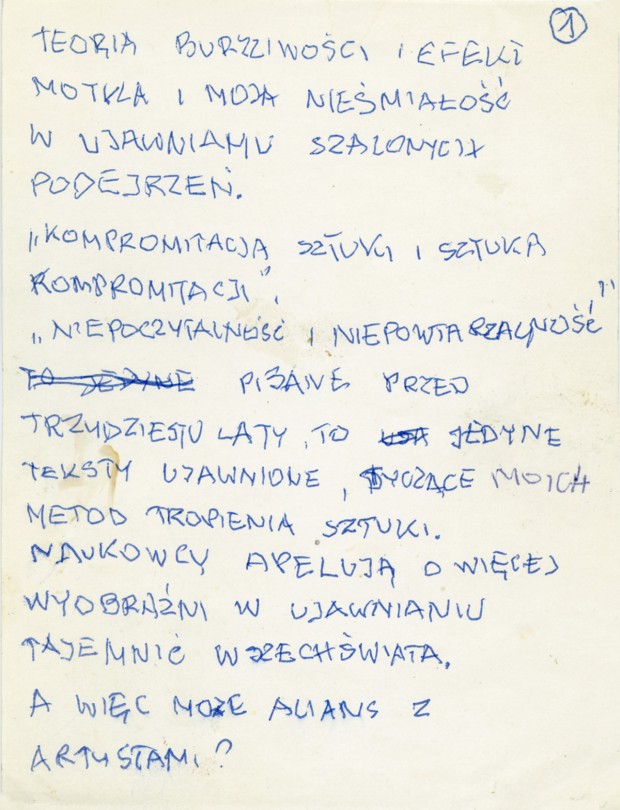 1
TEORIA BURZLIWOŚCI I EFEKT
MOTYLA I MOJA NIEŚMIAŁOŚĆ
W UJAWNIANIU SZALONYCH
PODEJRZEŃ.
„KOMPROMITACJA SZTUKI I SZTUKA
KOMPROMITACJI",
„NIEPOCZYTALNOŚĆ I NIEPOWTARZALNOŚĆ"
TO JEDYNE PISANE PRZED
TRZYDZIESTU LATY, TO JEDYNE
TEKSTY UJAWNIONE, TYCZĄCE MOICH
METOD TROPIENIA SZTUKI.
NAUKOWCY APELUJĄ O WIĘCEJ
WYOBRAŹNI W UJAWNIANIU
TAJEMNIC WSZECHŚWIATA.
A WIĘC MOŻE ALIANS Z
ARTYSTAMI?